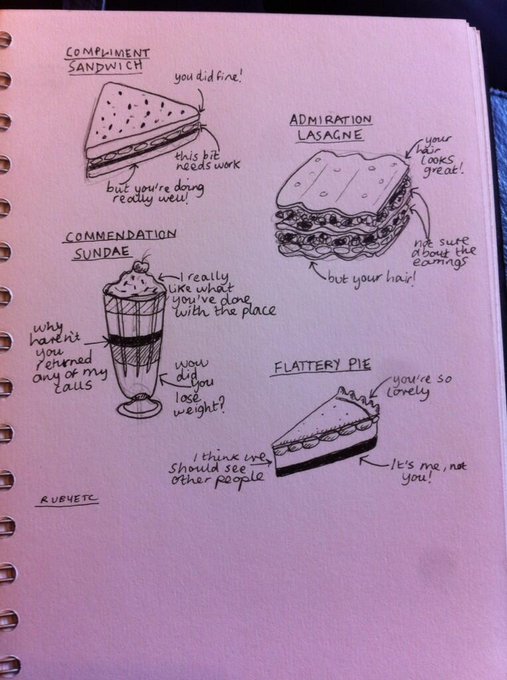 COMPLIMENT
SANDWICH
you did fine!
this bit
needs work
but you're doing
really well!
ADMIRATION
LASAGNE
your
hair
looks
great!
not sure
about the
earrings
but your hair!
COMMENDATION
SUNDAE
I really
like what
you've done
with the place
why
haven't
you
returned
any of my
calls
wow
did
you
lose
weight?
FLATTERY PIE
you're so
lovely
I think we
should see
other people
It's me, not
you!
RUBYETC